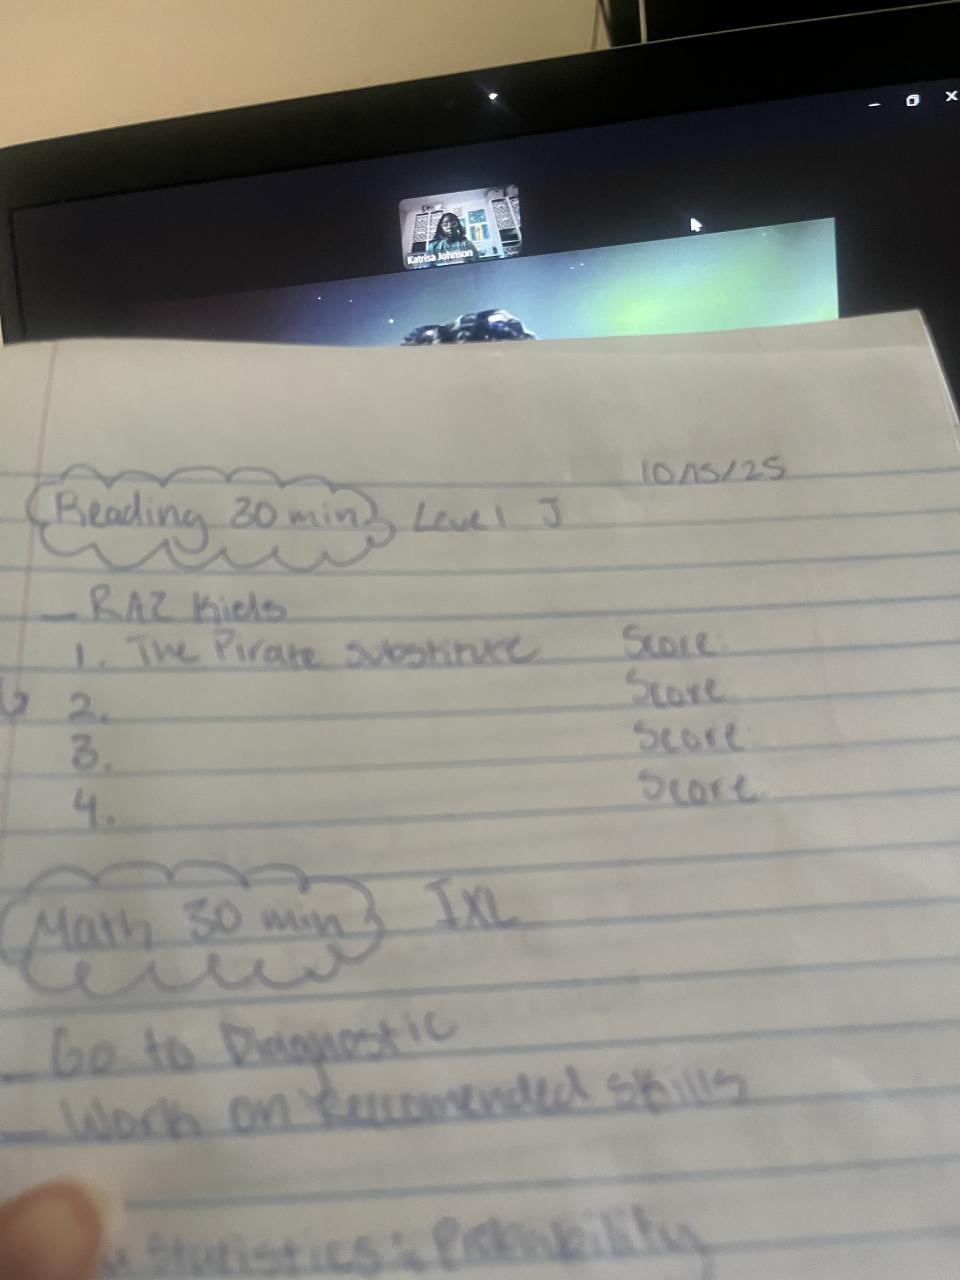 Katrisa Johnson
10/15/25
Reading 30 min Level J
- RAZ Kids
1. The Pirate substitute Score:
2. Score:
3. Score:
4. Score:
Math 30 min IXL
- Go to Diagnostic
- Work on Reccomended skills
Statistics & Probability